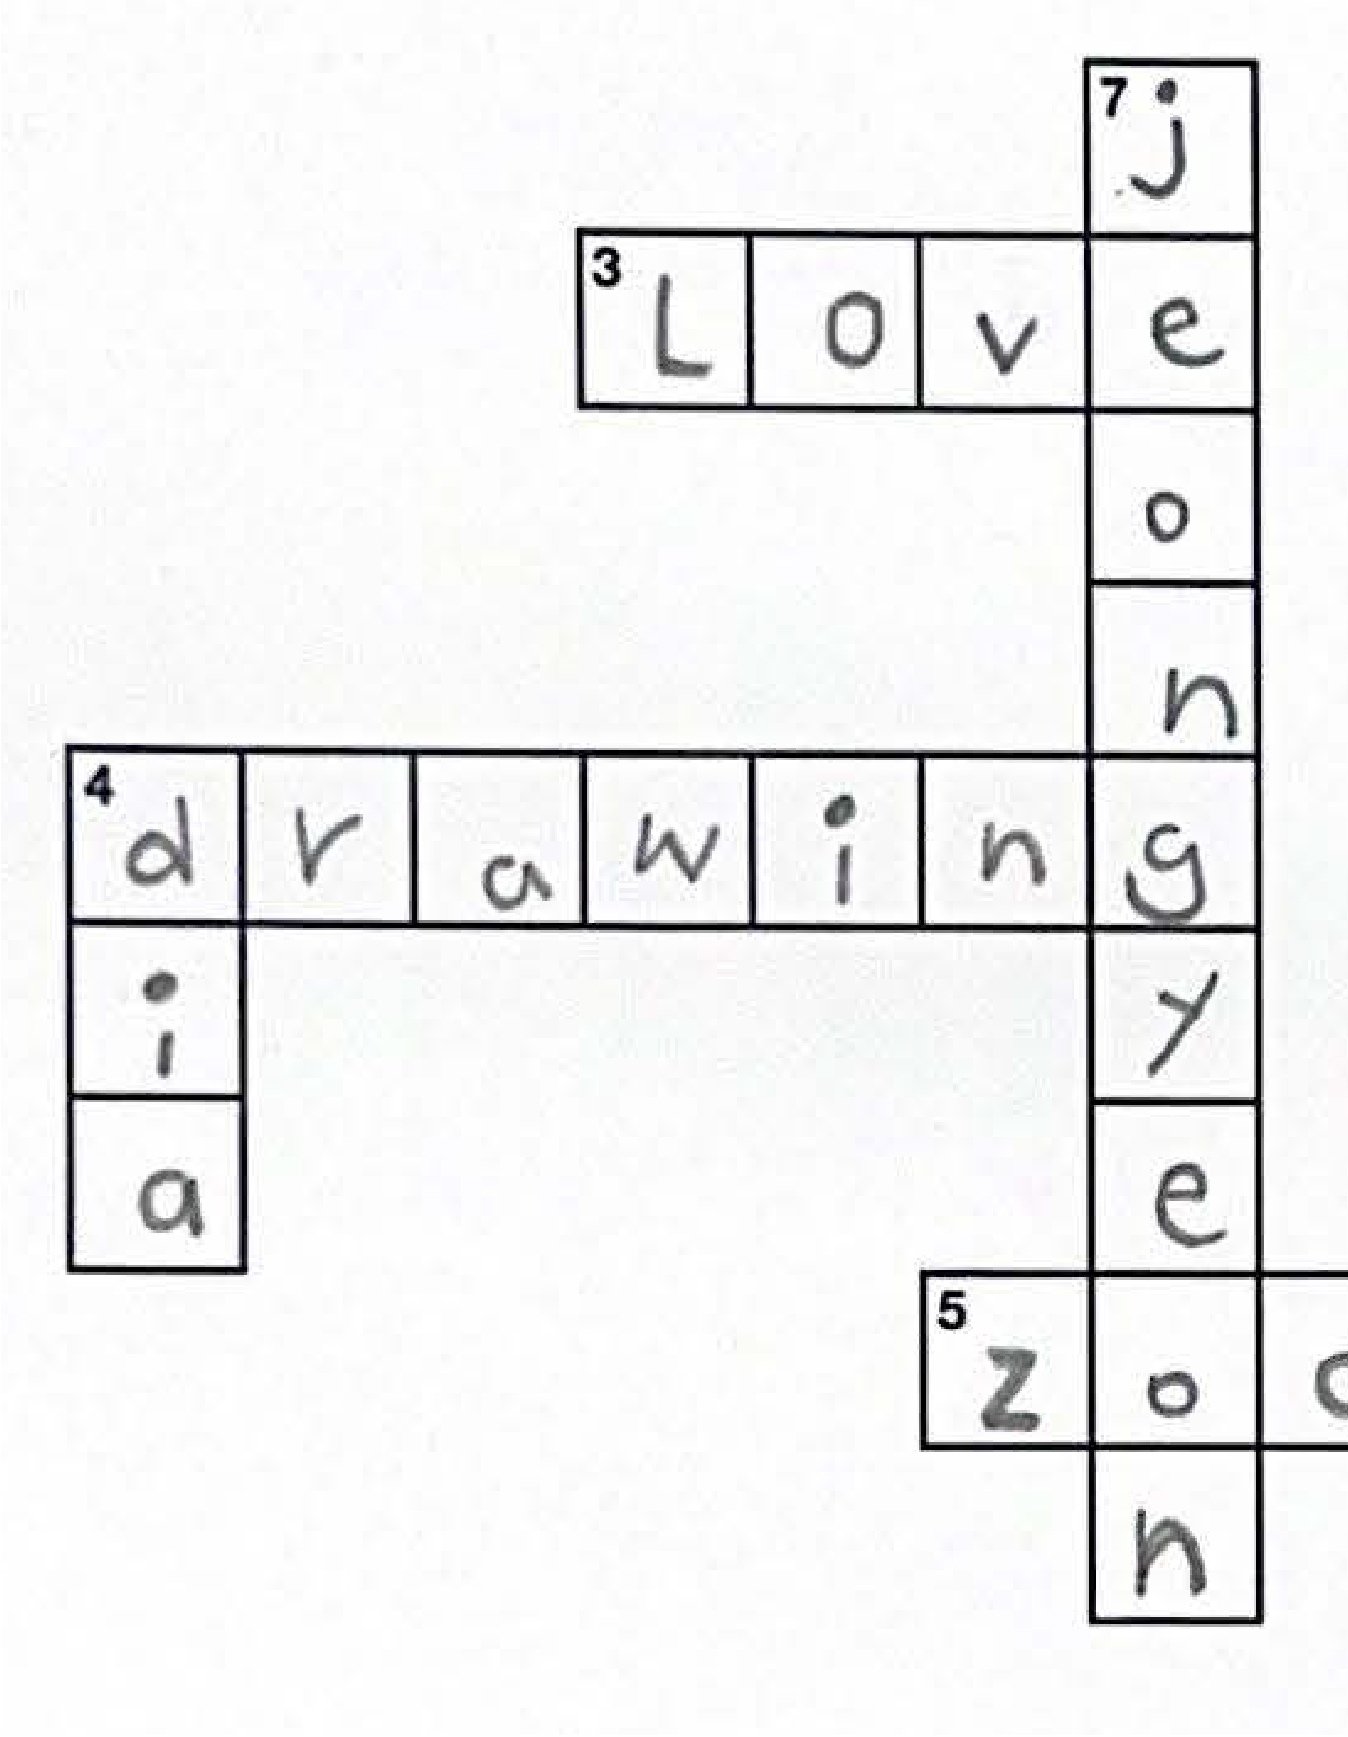 7 j
3 L o v e
o
n
4 d r a w i n g
i y
a e
5 z o
n